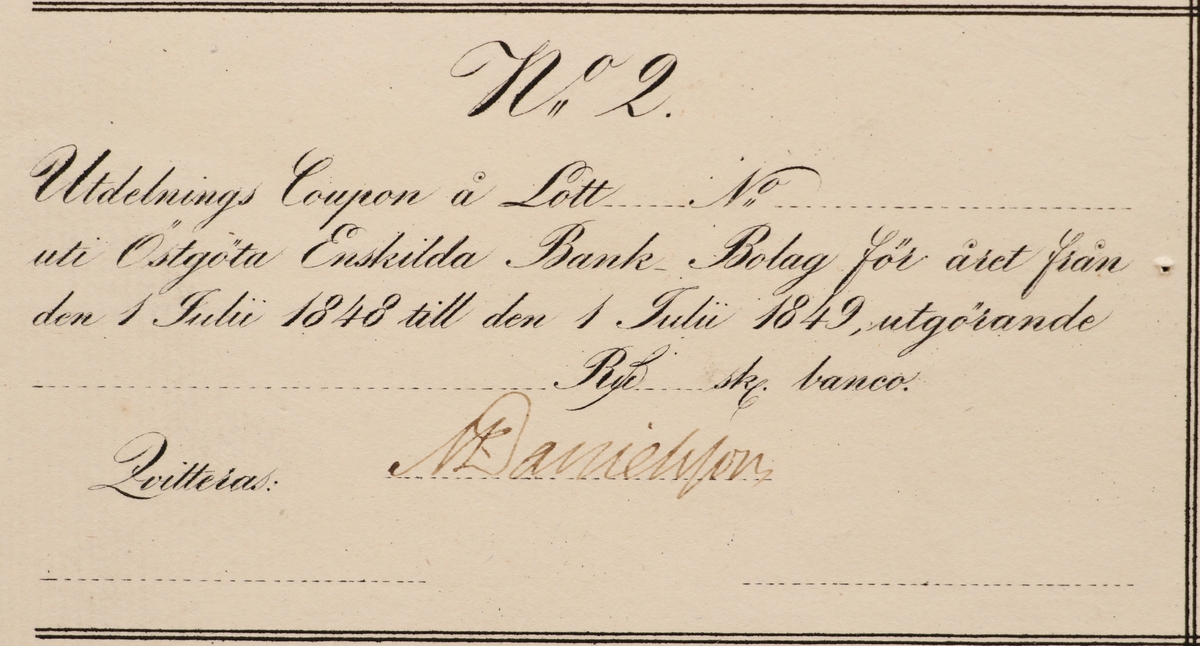 N:o 2.
Utdelnings Coupon å Lott N:o
uti Östgöta Enskilda Bank-Bolag för året från
den 1 Julii 1848 till den 1 Julii 1849, utgörande
R:d sk. banco.
Danielsson
Qvitteras: